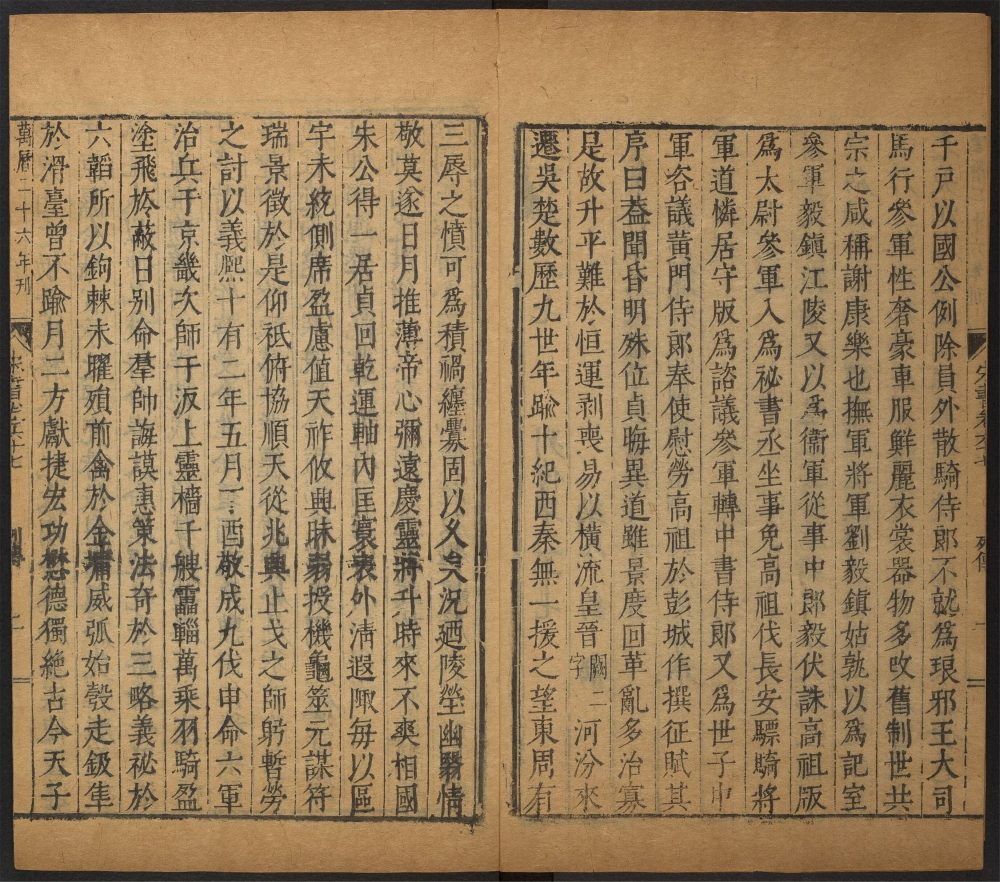 千戸以國公例除員外散騎侍郎不就爲琅邪王大司
馬行參軍性奢豪車服鮮麗衣裳器物多改舊制世共
宗之咸稱謝康樂也撫軍將軍劉毅鎮姑孰以爲記室
參軍毅鎮江陵又以爲衞軍從事中郎毅伏誅高祖版
爲太尉參軍入爲祕書丞坐事免高祖伐長安驃騎將
軍道憐居守版爲諮議參軍轉中書侍郎又爲世子中
軍咨議黄門侍郎奉使慰勞高祖於彭城作撰征賦其
序曰葢聞昏明殊位貞晦異道雖景度回革亂多治寡
足故升平難於恒運剥喪易以横流皇晉闕二字河汾來
遷吳楚數歷九世年踰十紀西秦無一援之望東周有
宋書卷六十七 列傳 一
三辱之憤可爲積禍纏釁固以久矣況廼陵塋幽翳情
敬莫遂日月推薄帝心彌遠慶靈將升時來不爽相國
朱公得一居貞回乾運軸内匡寰表外清遐陬每以區
宇未統側席盈慮值天祚攸興昧弱授機龜筮元謀符
瑞景徵於是仰祇俯協順天從兆興止戈之師躬暫勞
之討以義熙十有二年五月丁酉敬戒九伐申命六軍
治兵于京畿次師于汳上靈檣千艘靁輜萬乘羽騎盈
塗飛旍蔽日别命羣帥誨謨惠策法奇於三略義祕於
六韜所以鉤棘未曜殞前禽於金墉威弧始彀走鈒隼
於滑臺曾不踰月二方獻捷宏功懋德獨絶古今天子
萬曆二十六年刊 宋書卷六十七 列傳 二